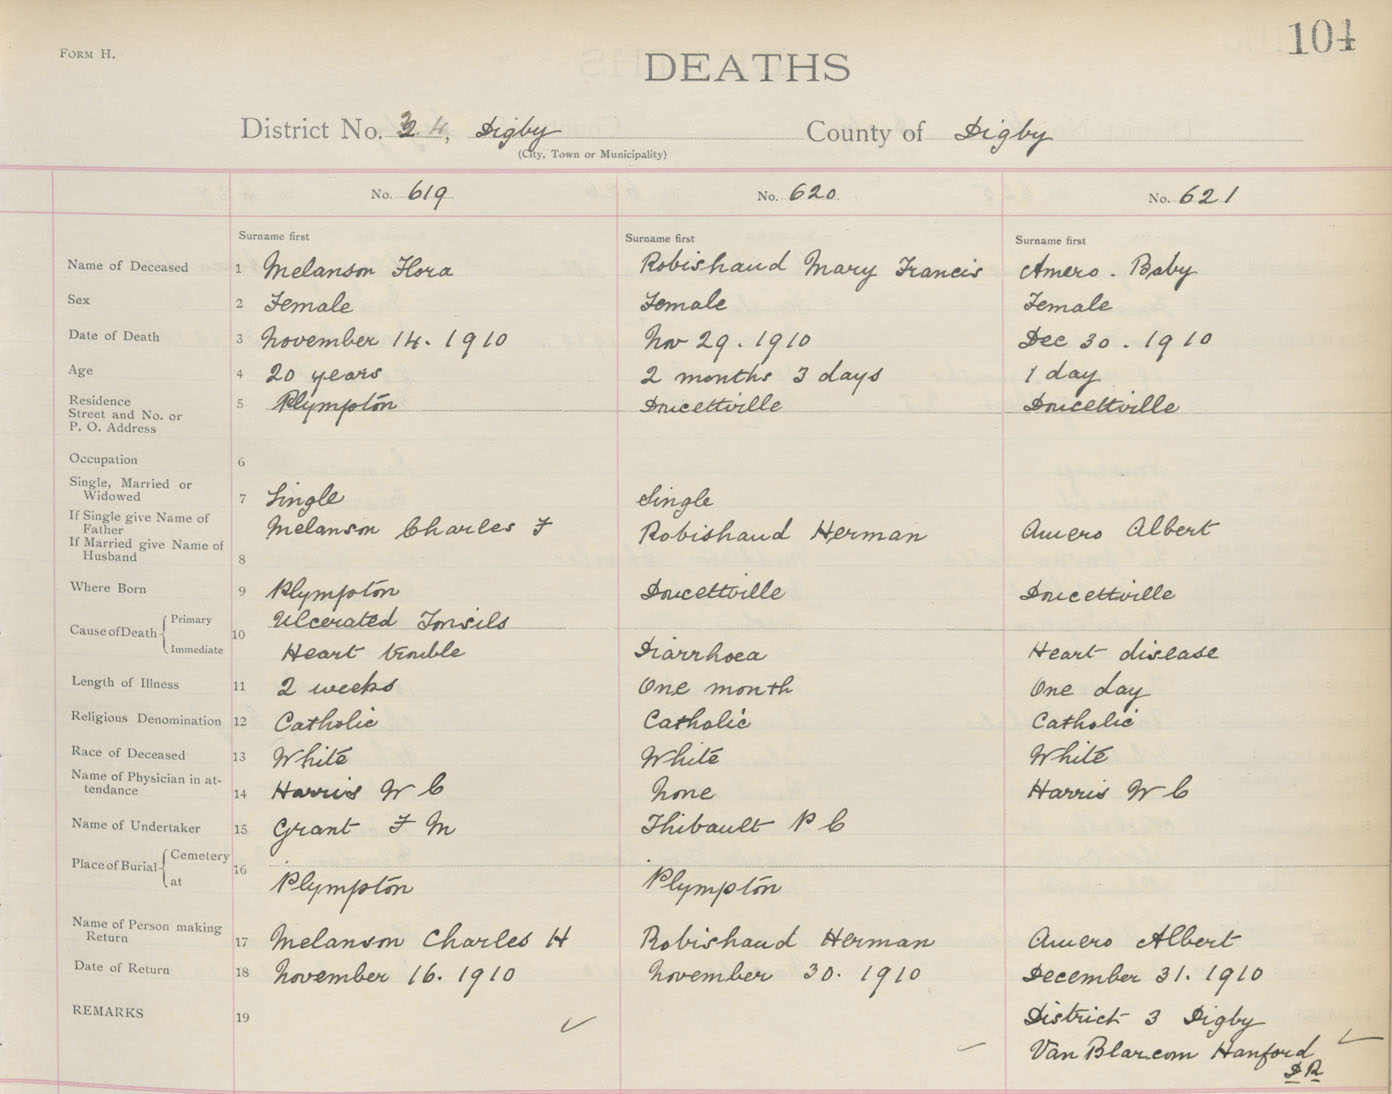 104
FORM H.
DEATHS
District No. 24, Digby County of Digby
(City, Town or Municipality)
No. 619 No. 620 No. 621
Surname first Surname first Surname first
Name of Deceased 1 Melanson Flora Robishaud Mary Francis Amero. Baby
Sex 2 Female Female Female
Date of Death 3 November 14. 1910 Nov 29. 1910 Dec 30. 1910
Age 4 20 years 2 months 3 days 1 day
Residence 5 Plympton Doucettville Doucettville
Street and No. or
P. O. Address
Occupation 6
Single, Married or
Widowed 7 Single Single
If Single give Name of
Father Melanson Charles F Robishaud Herman Amero Albert
If Married give Name of
Husband 8
Where Born 9 Plympton Doucettville Doucettville
Cause of Death Primary 10 Ulcerated Tonsils
Immediate Heart trouble Diarrhoea Heart disease
Length of Illness 11 2 weeks One month One day
Religious Denomination 12 Catholic Catholic Catholic
Race of Deceased 13 White White White
Name of Physician in at-
tendance 14 Harris W C None Harris W C
Name of Undertaker 15 Grant F M Thibault P C
Place of Burial Cemetery 16
at Plympton Plympton
Name of Person making
Return 17 Melanson Charles H Robishaud Herman Amero Albert
Date of Return 18 November 16. 1910 November 30. 1910 December 31. 1910
REMARKS 19 District 3 Digby
Van Blarcom Hanford
D R